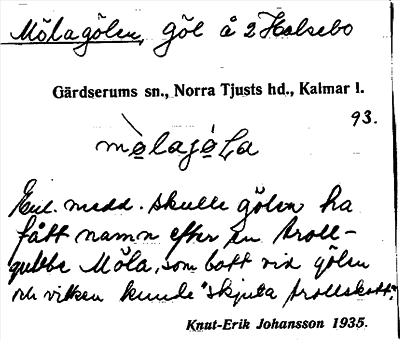 Mölagölen, göl å 2 Halsebo
Gärdserums sn., Norra Tjusts hd., Kalmar l.
93.
mò̤lajö́La
Enl. medd. skulle gölen ha
fått namn efter en troll-
gubbe Möla, som bott vid gölen
och vilken kunde "skjuta trollskott".
Knut-Erik Johansson 1935.